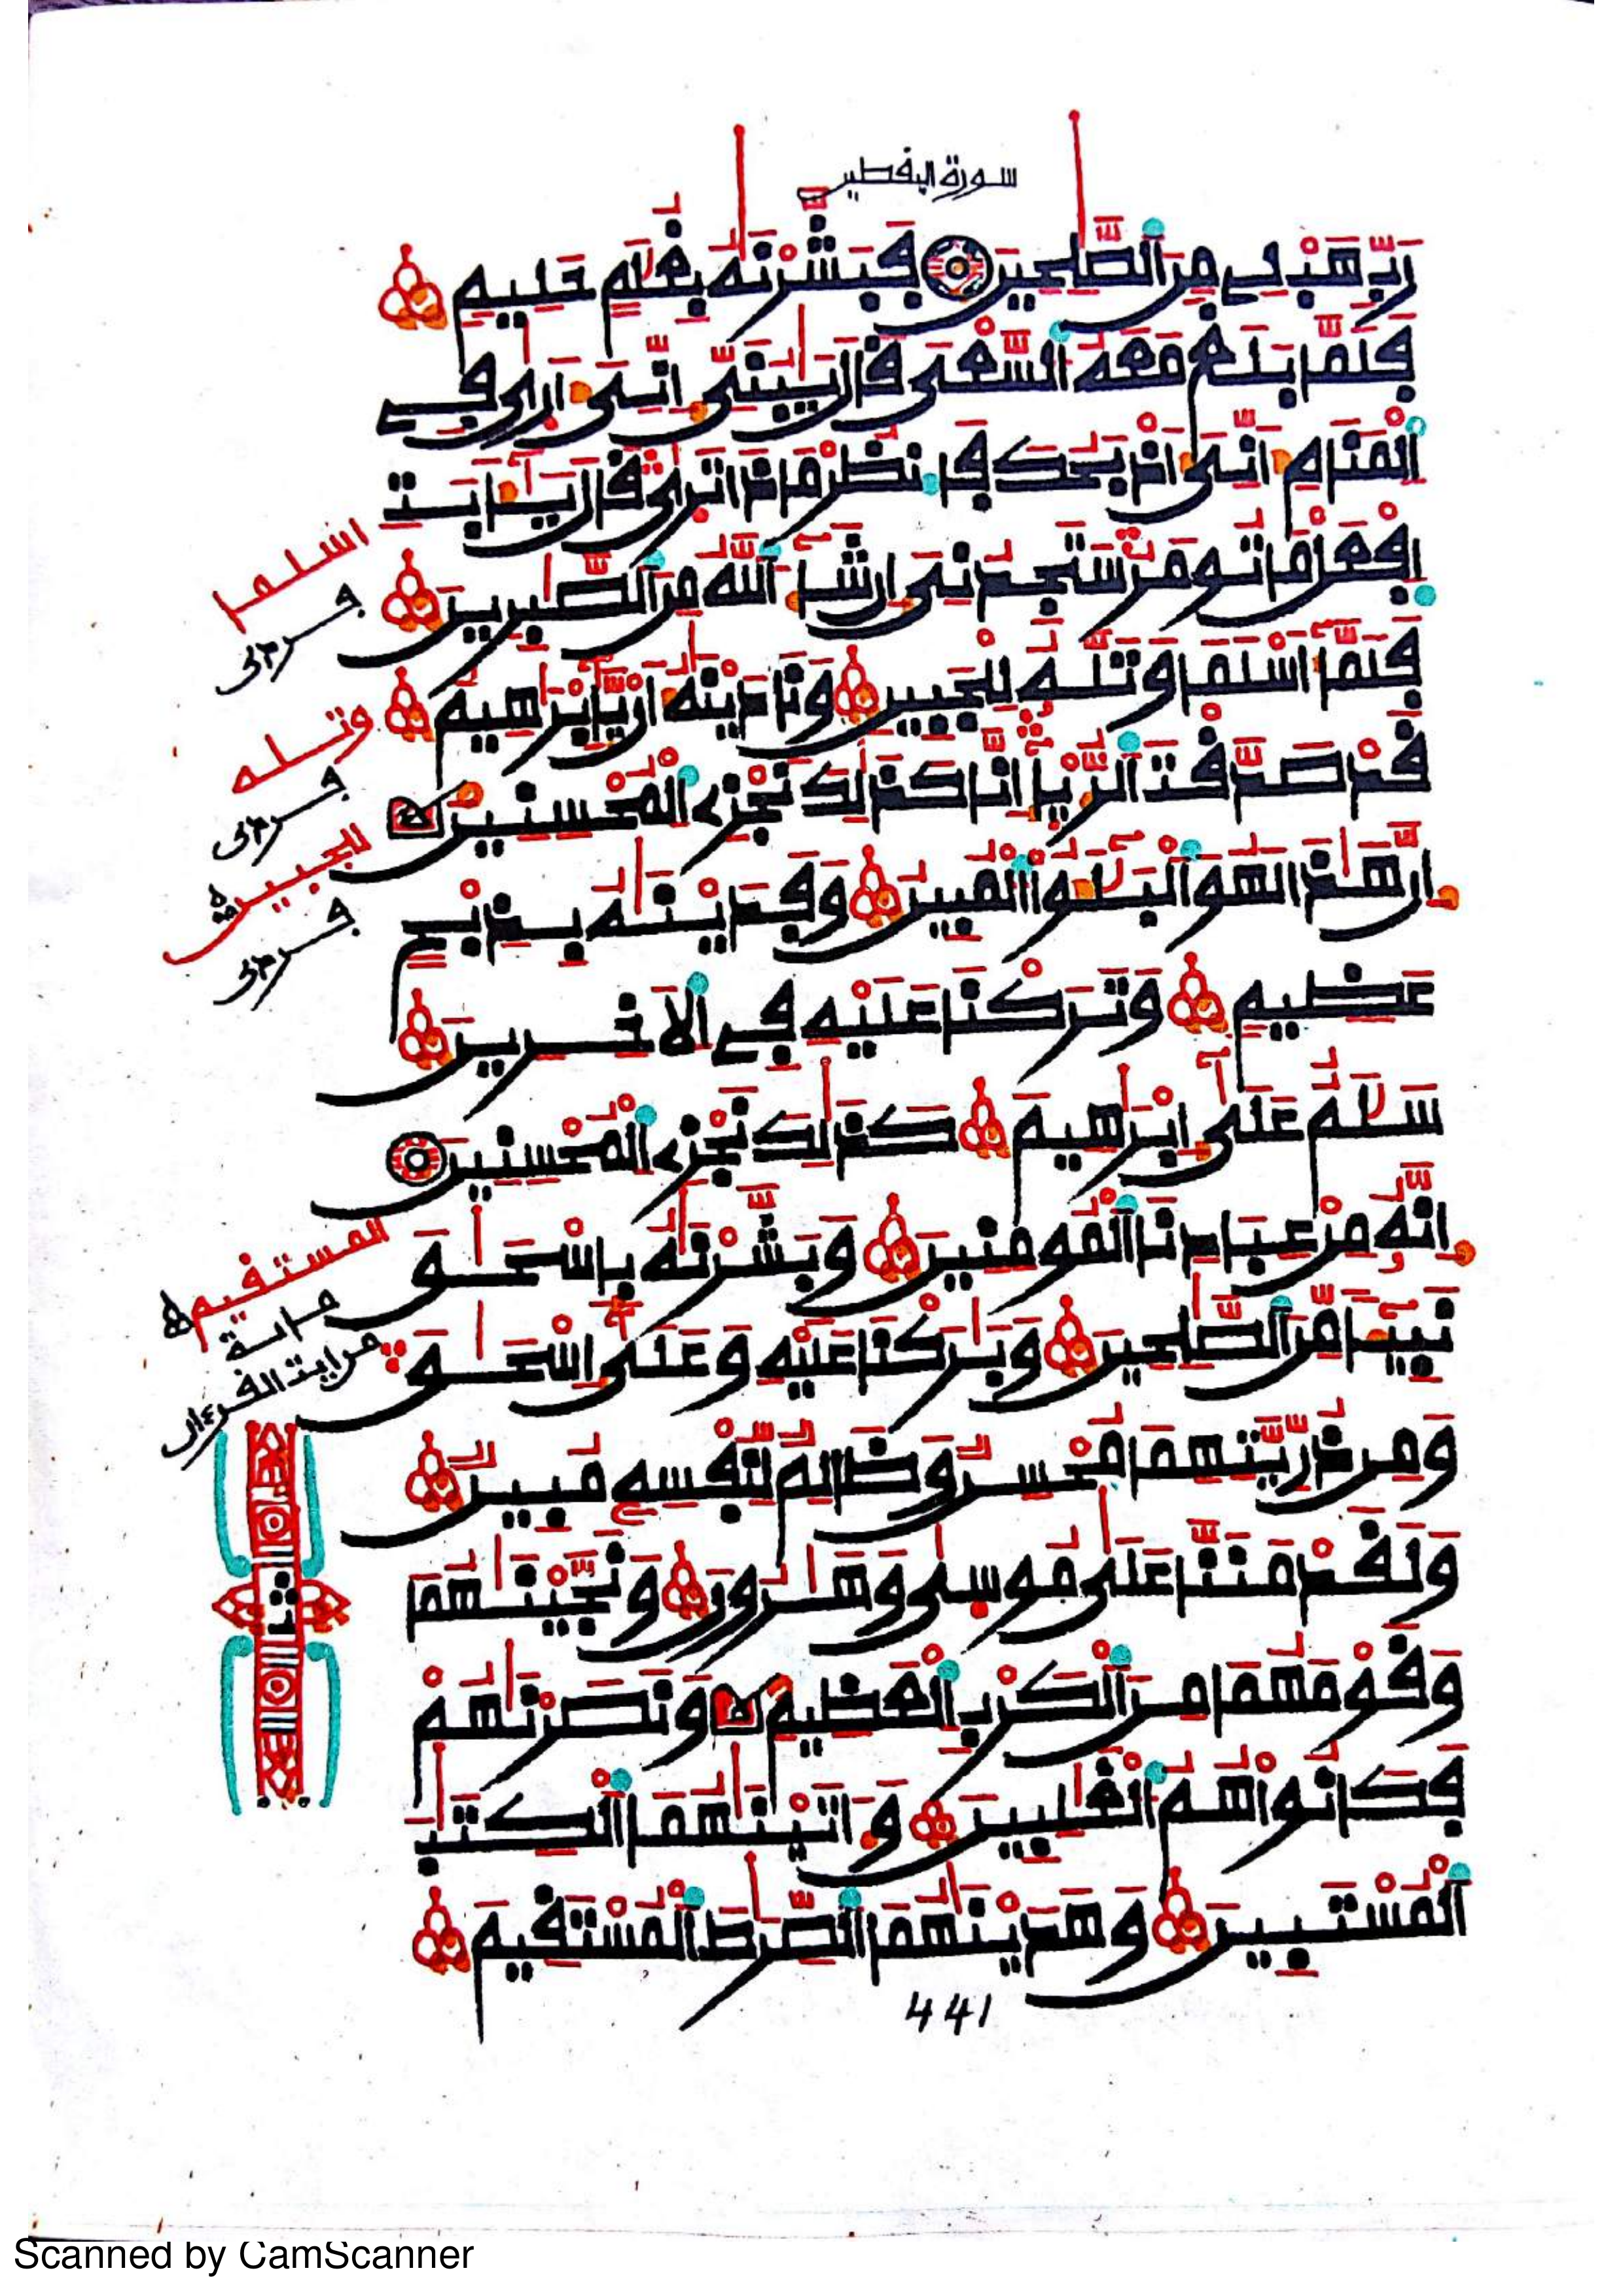 رَبِّ هَبْ لِي مِنَ ٱلصَّٰلِحِينَ فَبَشَّرْنَٰهُ بِغُلَٰمٍ حَلِيمٍ
فَلَمَّا بَلَغَ مَعَهُ ٱلسَّعْيَ قَالَ يَٰبُنَيِّ إِنِّيَ أَرَىٰ فِي
ٱلْمَنَامِ أَنِّيَ أَذْبَحُكَ فَٱنظُرْ مَاذَا تَرَىٰ قَالَ يَٰٓأَبَتِ
ٱفْعَلْ مَا تُومَرُ سَتَجِدُنِيَ إِن شَآءَ ٱللَّهُ مِنَ ٱلصَّٰبِرِينَ
فَلَمَّآ أَسْلَمَا وَتَلَّهُۥ لِلْجَبِينِ وَنَٰدَيْنَٰهُ أَنْ يَّٰٓإِبْرَٰهِيمُ
قَدْ صَدَّقْتَ ٱلرُّءْيَآ إِنَّا كَذَٰلِكَ نَجْزِي ٱلْمُحْسِنِينَ
إِنَّ هَٰذَا لَهُوَ ٱلْبَلَٰٓؤُا ٱلْمُبِينُ وَفَدَيْنَٰهُ بِذِبْحٍ
عَظِيمٍ وَتَرَكْنَا عَلَيْهِ فِي ٱلَاخِرِينَ
سَلَٰمٌ عَلَىٰٓ إِبْرَٰهِيمَ كَذَٰلِكَ نَجْزِي ٱلْمُحْسِنِينَ
إِنَّهُۥ مِنْ عِبَادِنَا ٱلْمُومِنِينَ وَبَشَّرْنَٰهُ بِإِسْحَٰقَ
نَبِيٓـًٔا مِّنَ ٱلصَّٰلِحِينَ وَبَٰرَكْنَا عَلَيْهِ وَعَلَىٰٓ إِسْحَٰقَ
وَمِن ذُرِّيَّتِهِمَا مُحْسِنٌ وَظَالِمٌ لِّنَفْسِهِۦ مُبِينٌ
وَلَقَدْ مَنَنَّا عَلَىٰ مُوسَىٰ وَهَٰرُونَ وَنَجَّيْنَٰهُمَا
وَقَوْمَهُمَا مِنَ ٱلْكَرْبِ ٱلْعَظِيمِ وَنَصَرْنَٰهُمْ
فَكَانُوا۟ هُمُ ٱلْغَٰلِبِينَ وَءَاتَيْنَٰهُمَا ٱلْكِتَٰبَ
ٱلْمُسْتَبِينَ وَهَدَيْنَٰهُمَا ٱلصِّرَٰطَ ٱلْمُسْتَقِيمَ
441
اسلما
وتله
للجبين
المستقيم
مراية
من اية القرءان
ثمن
Scanned by CamScanner